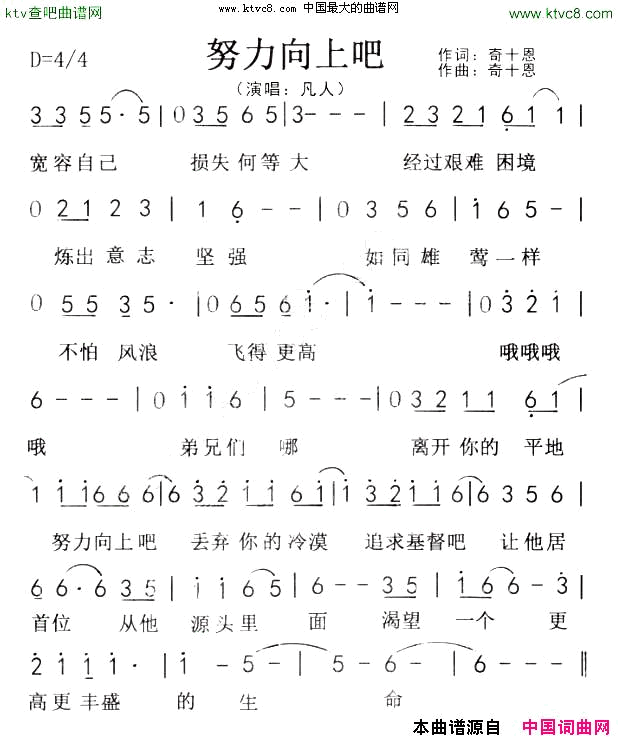 ktv查吧曲谱网
www.ktvc8.com 中国最大的曲谱网
www.ktvc8.com
D=4/4
努力向上吧
作词：奇十恩
作曲：奇十恩
（演唱：凡人）
3 3 5 5· 5 | 0 3 5 6 5 | 3 - - - | 2 3 2 1 6 1 1 |
宽容自己 损失何等大 经过艰难 困境
0 2 1 2 3 | 1 6 - - | 0 3 5 6 | 5 - - - |
炼出意志 坚强 如同雄 莺一样
0 5 5 3 5· | 0 6 5 6 1· | 1 - - - | 0 3 2 1 |
不怕 风浪 飞得更高 哦哦哦
6 - - - | 0 1 1 6 | 5 - - - | 0 3 2 1 1 | 6 1
哦 弟兄们 哪 离开你的 平地
1 1 1 6 6 6 | 6 3 2 1 1 6 1 | 1 3 2 1 1 6 | 6 3 5 6 |
努力向上吧 丢弃你的冷漠 追求基督吧 让他居
6 6· 6 3 5 | 1 1 6 5 | 6 - - 3 5 | 1 6 6 - 3 |
首位 从他 源头里 面 渴望 一个 更
2 1 1 1· | 1 - 5 - | 5 - 6 - | 6 - - - ||
高更丰盛 的 生 命
本曲谱源自 中国词曲网